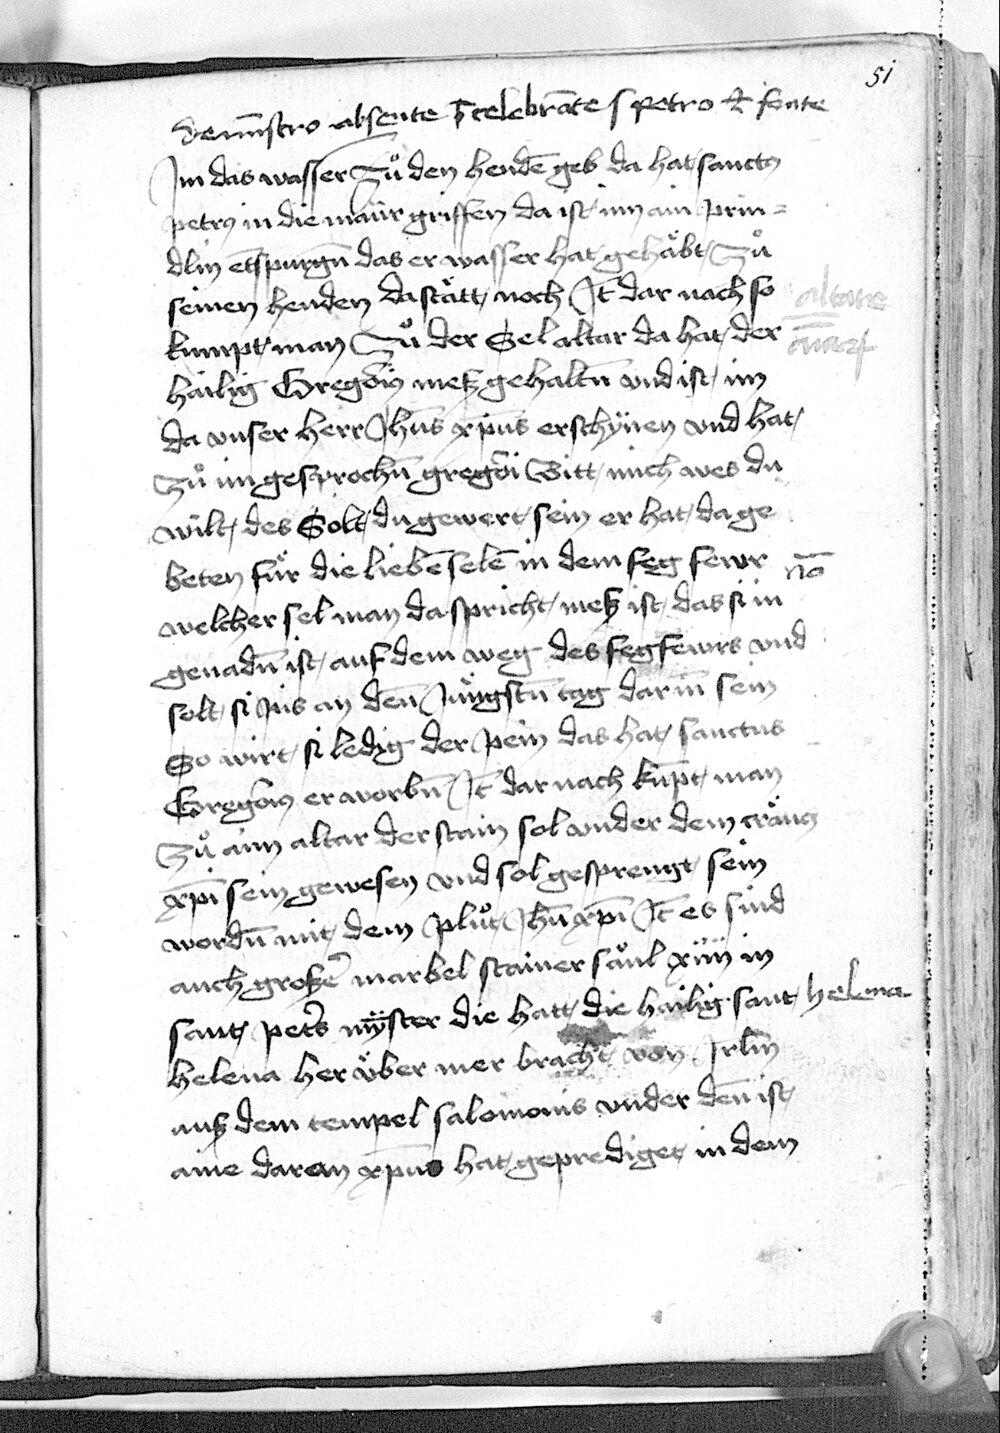 51
De ministro absente celebrāte s petro & fonte
Im das wasser Zů den hendē geb da hat sanctꝰ
petrꝰ in die maür griffen da ist im ain prün=
dlin etspurgn̄ das er wasser hat gehäbt Zů
seinen henden da stätt noch Jt̄ dar nach so
altare
kumpt man Zů der Sel altar da hat der
aīarꝝ
hailig Gregoriꝰ meß gehaltn̄ vnd ist im
da vnser herr Jhūs xp̄us erschÿnen vnd hat
Zů im gesprochn̄ gregōri Bitt mich wes du
wilt des Solt du gewert sein er hat da ge
beten für die liebē selē in dem feg fewr
nō
welcher sel man da spricht meß ist das si in
genadn̄ ist auf dem weg des fegfewrs vnd
solt si pis an den Jüngstn̄ tag darin̄ sein
So wirt si ledig der pein das hat sanctus
Gregoriꝰ erworbn̄ Jt̄ dar nach kūpt man
Zů aim altar der stain sol vnder dem cräucz
xp̄i sein gewesen vnd sol gesprengt sein
wordn̄ mit dem plůt Jhū xp̄i Jt̄ es sind
auch großer marbel stainer säul xiiii in
sant peters mÿster die hatt die hailig sant helena
helena her über mer bracht von Jrlm̄
auß dem tempel salomonis vnder den̄ ist
aine daran xp̄us hat geprediget in dem